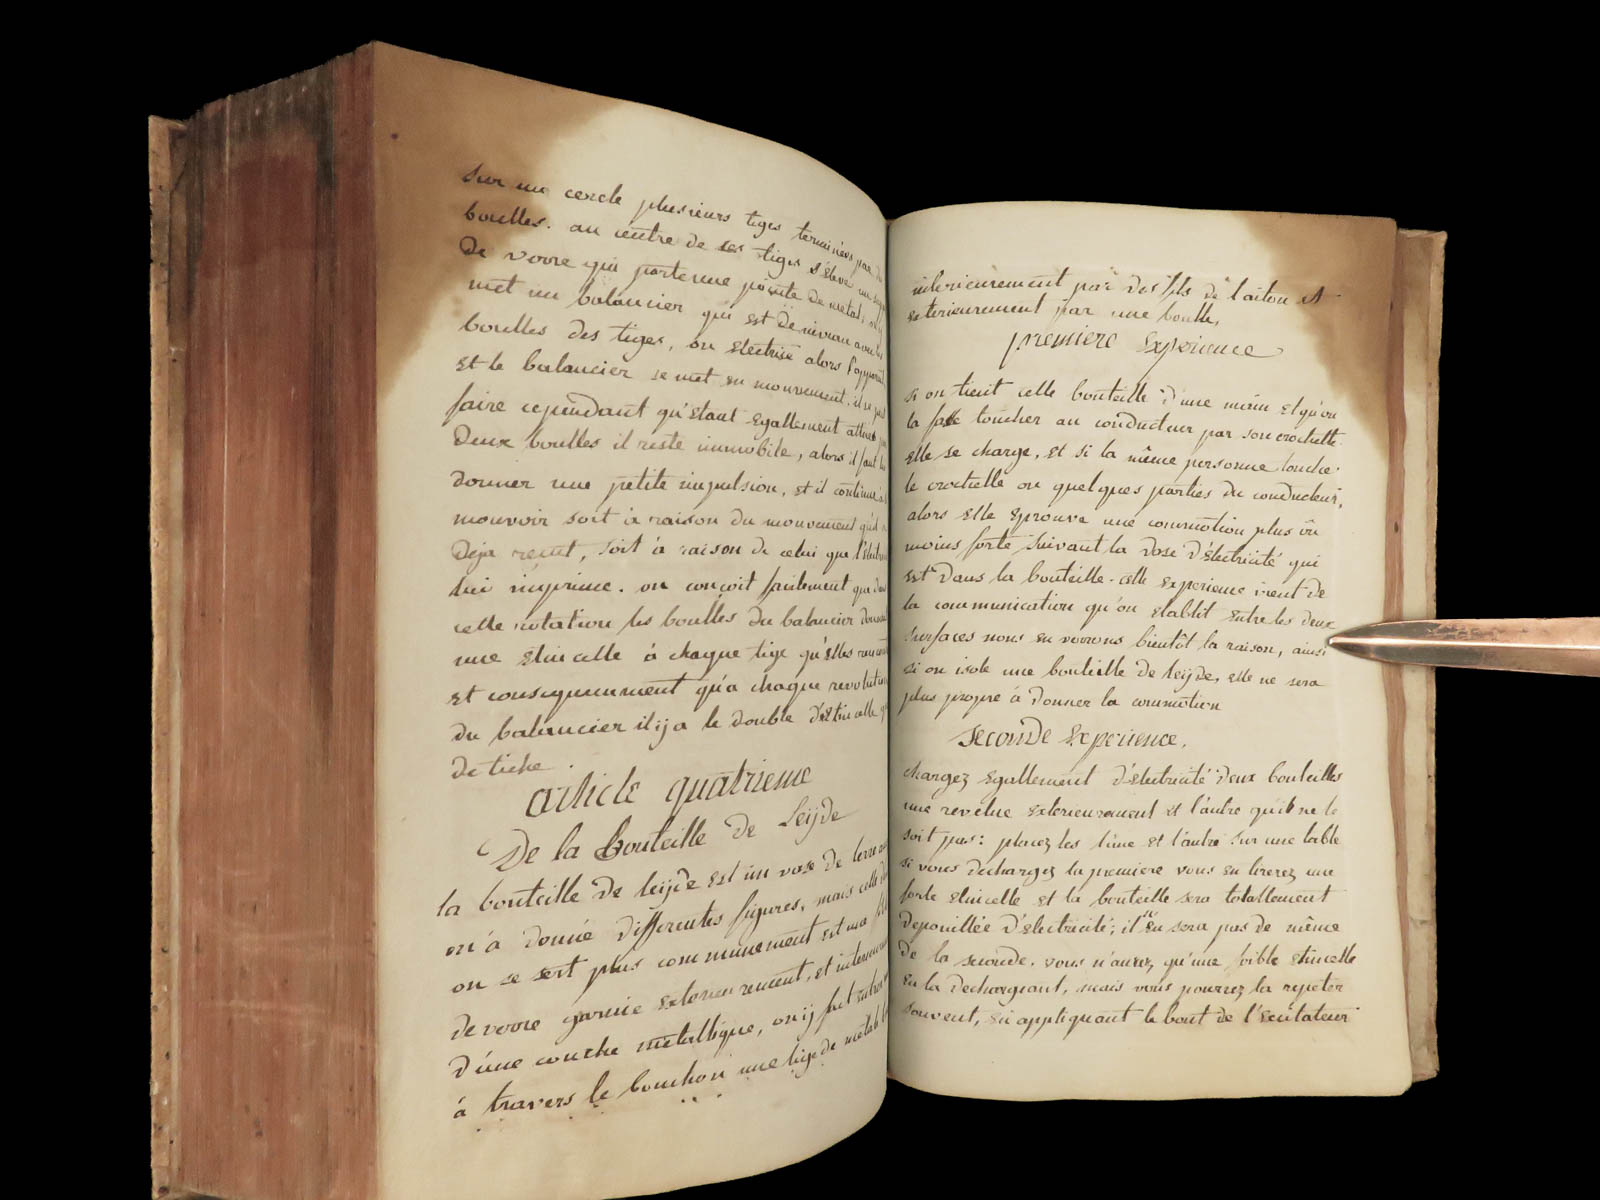 sur un cercle plusieurs tiges terminées par des
boulles. au centre de ces tiges s'éleve un
De verre qui porte une pointe de metal,
met un balancier qui est De niveau avec les
boulles des tiges, on electrise alors l'appareil
et le balancier se met en mouvement. il se peut
faire cependant qu'étant egallement attiré par
Deux boulles il reste immobile, alors il faut lui
donner une petite impulsion, et il continue à se
mouvoir soit à raison du mouvement qu'il a
Déja recut, soit à raison de celui que l'électricité
lui imprime. on conçoit facilement que dans
cette rotation les boulles du balancier donnent
une etincelle à chaque tige qu'elles rencontrent
et consequemment qu'a chaque revolution
du balancier il ij a le double d'étincelle que
de tiche.
article quatrieme
De la Bouteille de Leijde
la bouteille de leijde est un vase de terre
on a donné differentes figures, mais celle dont
on se sert plus communement est une
de verre garnie exterieurement, et interieurement
d'une couche metallique, on ij fait entrer
à travers le bouchon une tige de métal
interieurement par des fils de laiton et
exterieurement par une boulle,
premiere Experience
si on tient cette bouteille d'une main et qu'on
la fasse toucher au conducteur par son crochette
elle se charge, et si la même personne touche
le crochette ou quelques parties du conducteur,
alors elle eprouve une commotion plus ou
moins forte suivant la dose d'électricité qui
est dans la bouteille. cette experience vient de
la communication qu'on etablit entre les deux
surfaces nous en verrons bientôt la raison, ainsi
si on isole une bouteille de leijde, elle ne sera
plus propre à donner la commotion
seconde Experience.
chargez egallement d'électricité deux bouteilles
une revêtue exterieurement et l'autre qui ne le
soit pas: placez les l'une et l'autre sur une table
si vous dechargez la premiere vous en tirerez une
forte etincelle et la bouteille sera totallement
depouillée d'électricité; il n'en sera pas de même
de la seconde. vous n'aurez qu'une foible etincelle
en la dechargeant, mais vous pourrez la repeter
souvent, en appliquant le bout de l'excitateur